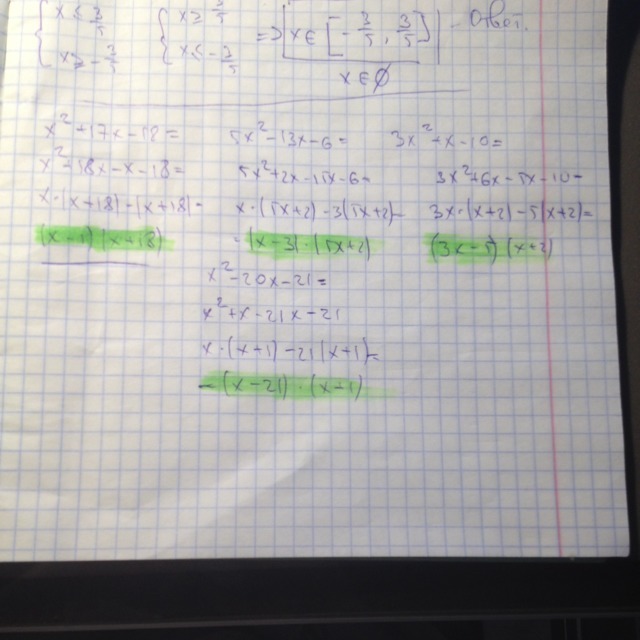 x ≤ 3/5 x ≥ 3/5 => x ∈ [-3/5, 3/5] - Ответ.
x ≥ -3/5 x < -3/5
x ∈ ∅
x² + 17x - 18 =
x² + 18x - x - 18 =
x · (x + 18) - (x + 18) =
(x - 1) (x + 18)
5x² - 13x - 6 =
5x² + 2x - 15x - 6 =
x · (5x + 2) - 3(5x + 2) =
= (x - 3) · (5x + 2)
3x² + x - 10 =
3x² + 6x - 5x - 10 =
3x · (x + 2) - 5(x + 2) =
(3x - 5) (x + 2)
x² - 20x - 21 =
x² + x - 21x - 21
x · (x + 1) - 21(x + 1) =
= (x - 21) · (x + 1)